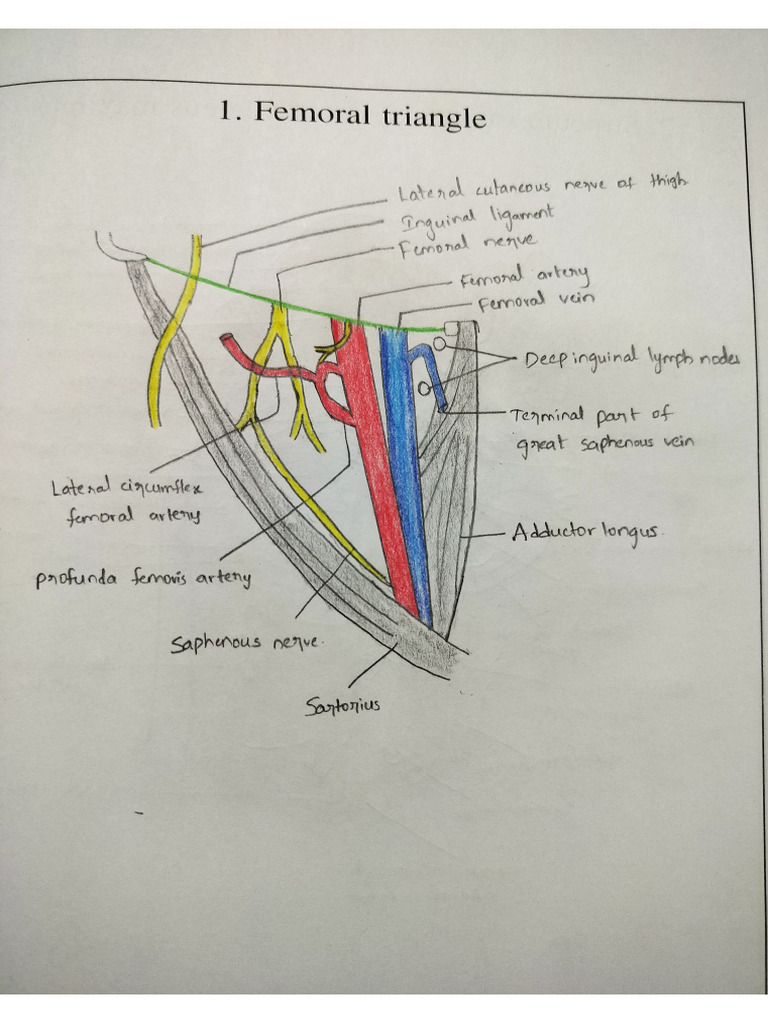 1. Femoral triangle
Lateral cutaneous nerve of thigh
Inguinal ligament
Femoral nerve
Femoral artery
Femoral vein
Deep inguinal lymph nodes
Terminal part of
great saphenous vein
Lateral circumflex
femoral artery
Adductor longus.
profunda femoris artery
Saphenous nerve.
Sartorius